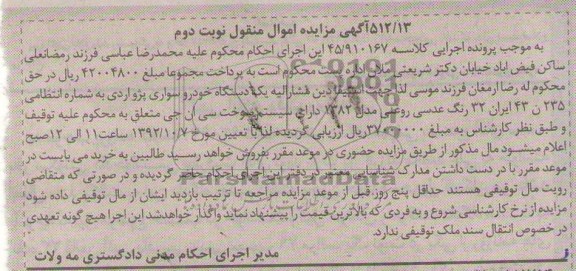 ۵۱۲/۱۳آگهی مزایده اموال منقول نوبت دوم
به موجب پرونده اجرایی کلاسه ۴۵/۹۱۰۱۶۷ این اجرای احکام محکوم علیه محمدرضا عباسی فرزند رمضانعلی
ساکن فیض اباد خیابان دکتر شریعتی محکوم است به پرداخت مجموعا مبلغ ۴۲۰۰۴۸۰۰ ریال در حق
محکوم له رضا ارمغان فرزند موسی لذا جهت استیفا دین مشارالیه یک دستگاه خودرو سواری پژو اردی به شماره انتظامی
۲۳۵ ن ۴۳ ایران ۳۲ رنگ عدسی روغنی مدل ۱۳۸۲ دارای سیستم سوخت سی ان جی متعلق به محکوم علیه توقیف
و طبق نظر کارشناس به مبلغ ریال ارزیابی گردیده لذا با تعیین مورخ ۱۳۹۲/۱۰/۷ ساعت ۱۱ الی ۱۲صبح
اعلام میشود مال مذکور از طریق مزایده حضوری در موعد مقرر بفروش خواهد رسید طالبین به خرید می بایست در
موعد مقرر با در دست داشتن مدارک شناسایی معتبر در دفتر این اجرای احکام حاضر گردیده و در صورتی که متقاضی
رویت مال توقیفی هستند حداقل پنج روز قبل از موعد مزایده مراجعه تا ترتیب بازدید ایشان از مال توقیفی داده شود
مزایده از نرخ کارشناسی شروع و به فردی که بالاترین قیمت را پیشنهاد نماید واگذار خواهد شد این اجرا هیچ گونه تعهدی
در خصوص انتقال سند ملک توقیفی ندارد.
مدیر اجرای احکام مدنی دادگستری مه ولات